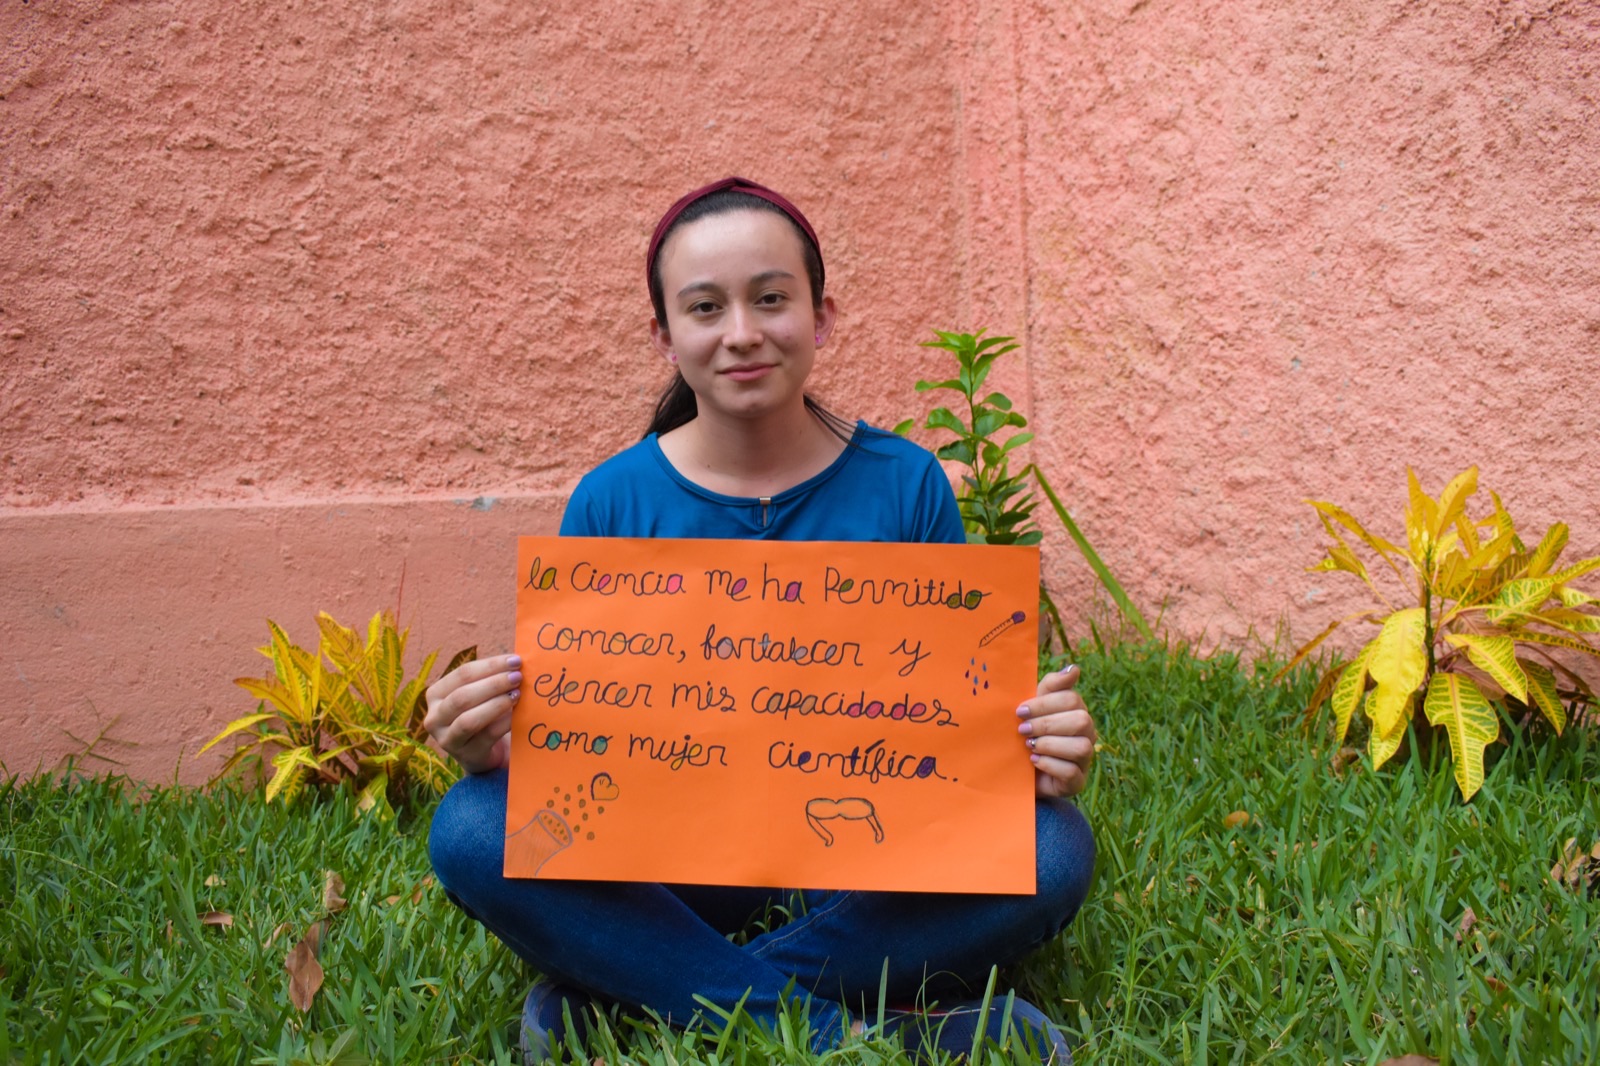 la Ciencia me ha Permitido
conocer, fortalecer y
ejercer mis capacidades
como mujer científica.